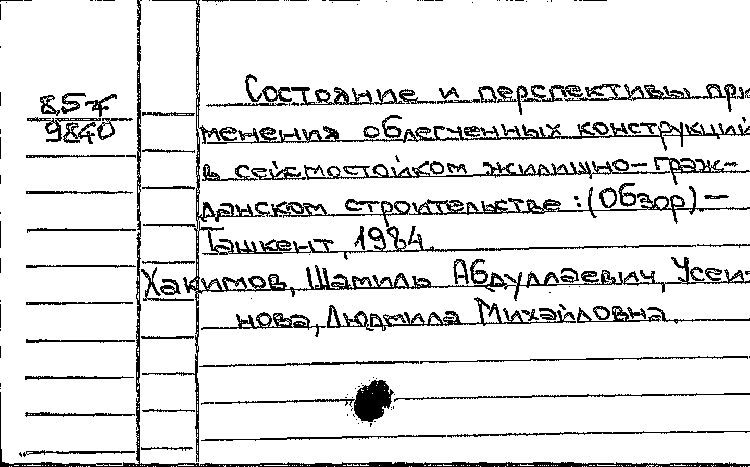 85-4
9840
Состояние и перспективы при-
менения облегченных конструкций
в сейсмостойком жилищно-граж-
данском строительстве: (Обзор) —
Ташкент, 1984.
Хакимов, Шамиль Абдуллаевич, Усеи-
нова, Людмила Михайловна.